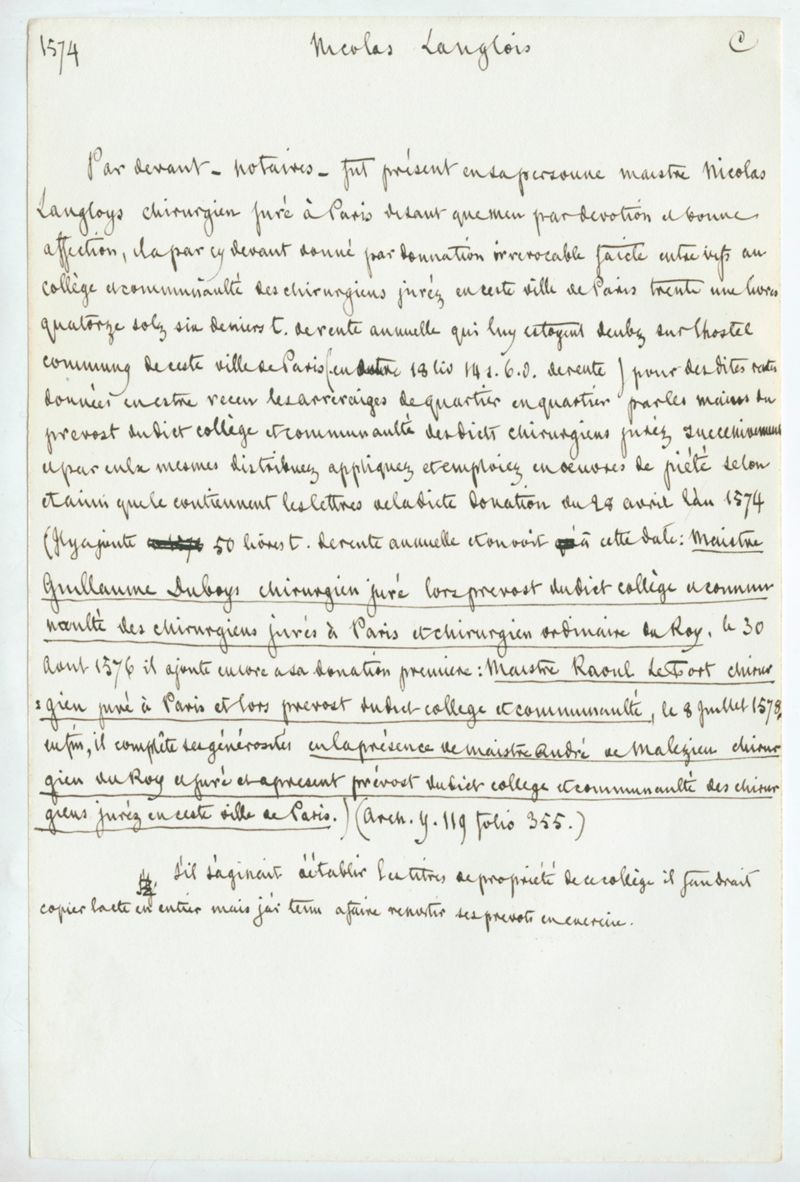 1574 Nicolas Langlois C
Par devant - notaires - fut présent en sa personne maistre Nicolas
Langloys chirurgien juré à Paris disant que meu par devotion et bonne
affection, il a par cy devant donné par donnation irrevocable faicte entre vifs au
collège et communaulté des chirurgiens juréz en ceste ville de Paris trente une livres
quatorze solz six deniers t. de rente annuelle qui luy estoyent deubz sur lhostel
commung de ceste ville de Paris (en 18 liv 14 s. 6. d. de rente) pour desdites rentes
données en estre receu les arreraiges de quartier en quartier par les mains du
prevost dudict collège et communaulté desdicts chirurgiens juréz successivement
et par eulx mesmes distribuez appliquez et emploiez en oeuvres de piété selon
et ainsi que le contiennent les lettres de ladicte donation du 28 avril l'an 1574
(Il y ajoute 50 livres t. de rente annuelle et on voit à cette date: Maistre
Guillaume Duboys chirurgien juré lors prevost dudict collège et commu
naulté des chirurgiens jurés à Paris et chirurgien ordinaire du Roy. le 30
Aout 1576 il ajoute encore a sa donation premiere: Maistre Raoul Le Fort chirur
=gien juré à Paris et lors prevost dudict college et communaulté, le 8 Juillet 1578,
enfin, il complète ses générosités en la présence de maistre André de Malezieu chirur
gien du Roy et juré et a present prévost dudict college et communaulté des chirur
giens juréz en ceste ville de Paris.) (Arch. Y. 119 folio 355.)
S'il s'agissait d'établir les titres de propriété de ce collège il faudrait
copier lacte en entier mais j'ai tenu a faire ressortir ses prevots en exercice.